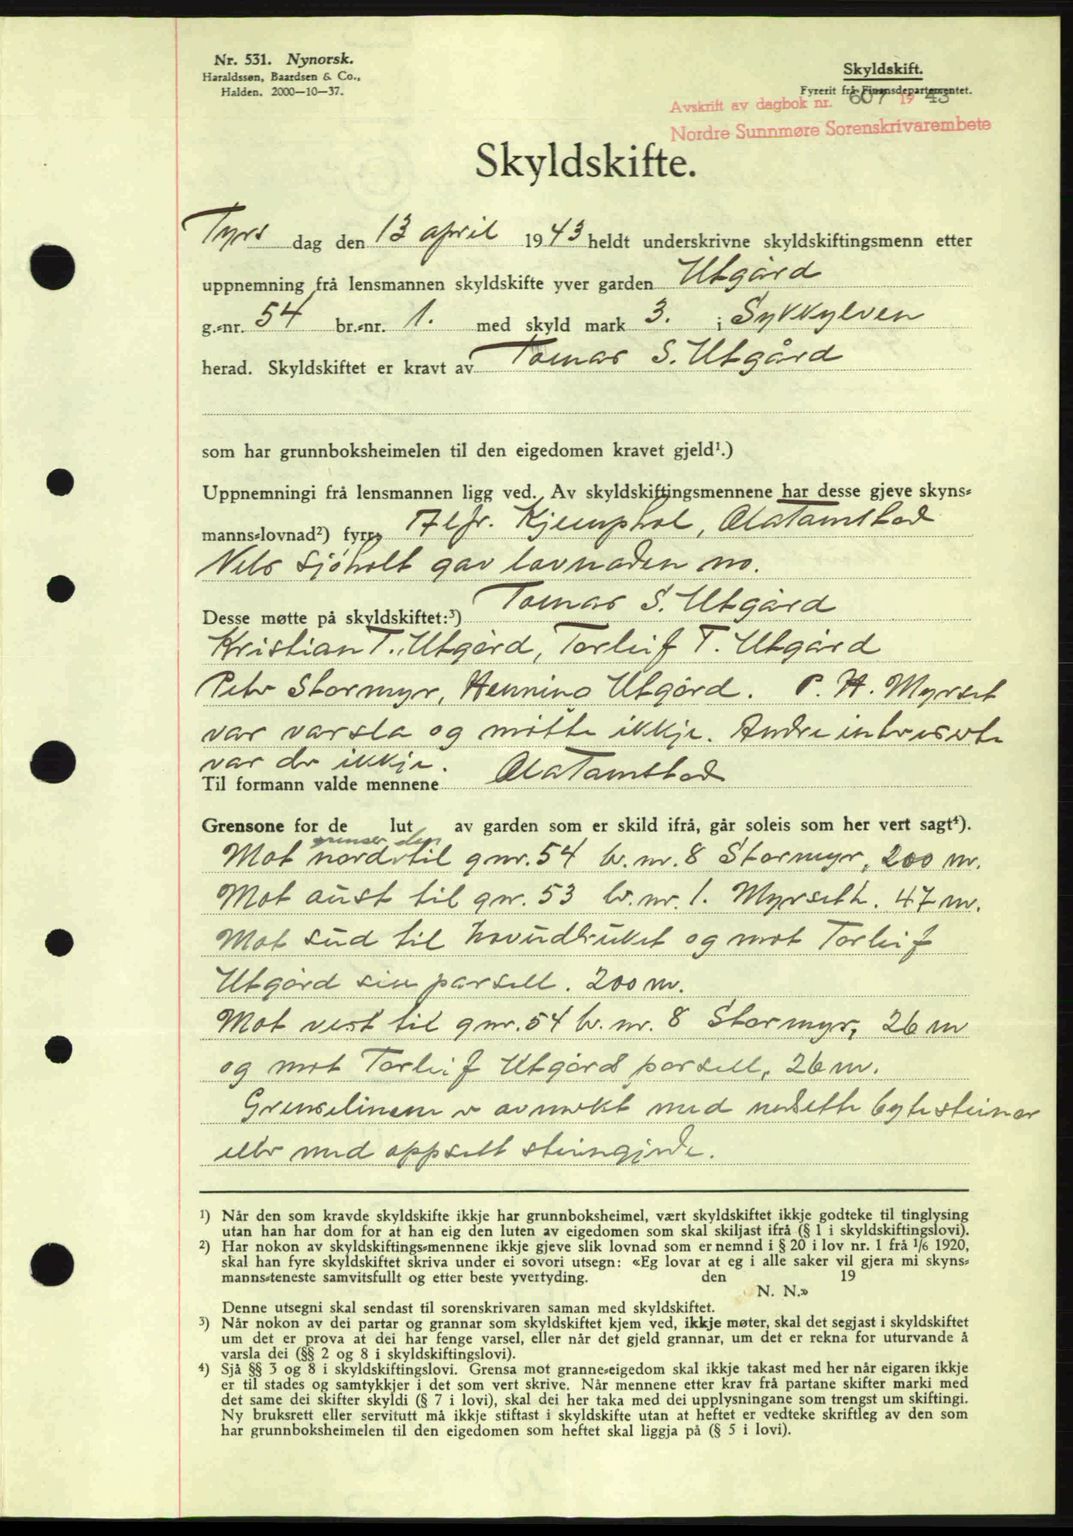 Nr. 531. Nynorsk.
Haraldssøn, Baardsen & Co.,
Halden. 2000—10—37.
Skyldskift.
Fyrerit frå Finansdepartementet.
Avskrift av dagbok nr. 607 1943
Nordre Sunnmøre Sorenskrivarembete
Skyldskifte.
Tyrs dag den 13 april 1943 heldt underskrivne skyldskiftingsmenn etter
uppnemning frå lensmannen skyldskifte yver garden Utgård
g.-nr. 54 br.-nr. 1. med skyld mark 3. i Sykkylven
herad. Skyldskiftet er kravt av Tomas S. Utgård
som har grunnboksheimelen til den eigedomen kravet gjeld¹.)
Uppnemningi frå lensmannen ligg ved. Av skyldskiftingsmennene har desse gjeve skyns-
manns-lovnad²) fyrr, Alfr. Kjemphol, Ola Tamstad
Nels Sjøholt gav lovnaden no.
Desse møtte på skyldskiftet:³) Tomas S. Utgård
Kristian T. Utgård, Torleif T. Utgård
Peter Stormyr, Henning Utgård. P. H. Myrset
var varsla og møtte ikkje. Andre intreserte
var der ikkje.
Til formann valde mennene Ola Tamstad
Grensone for de lut av garden som er skild ifrå, går soleis som her vert sagt⁴).
grenser den
Mot nord til gnr. 54 br. nr. 8 Stormyr, 200 m.
Mot aust til gnr. 53 br. nr. 1. Myrseth. 47 m.
Mot sud til hovudbruket og mot Torleif
Utgård sin parsell. 200 m.
Mot vest til gnr. 54 br. nr. 8 Stormyr, 26 m
og mot Torleif Utgårds parsell, 26 m.
Grenselinene er avmerkt med nedsette bytesteinar
eller med oppsett steingjerde.
¹) Når den som kravde skyldskifte ikkje har grunnboksheimel, vært skyldskiftet ikkje godteke til tinglysing
utan han har dom for at han eig den luten av eigedomen som skal skiljast ifrå (§ 1 i skyldskiftingslovi).
²) Har nokon av skyldskiftings-mennene ikkje gjeve slik lovnad som er nemnd i § 20 i lov nr. 1 frå ¹/6 1920,
skal han fyre skyldskiftet skriva under ei sovori utsegn: «Eg lovar at eg i alle saker vil gjera mi skyns-
manns-teneste samvitsfullt og etter beste yvertyding. den 19
N. N.»
Denne utsegni skal sendast til sorenskrivaren saman med skyldskiftet.
³) Når nokon av dei partar og grannar som skyldskiftet kjem ved, ikkje møter, skal det segjast i skyldskiftet
um det er prova at dei har fenge varsel, eller når det gjeld grannar, um det er rekna for uturvande å
varsla dei (§§ 2 og 8 i skyldskiftingslovi).
⁴) Sjå §§ 3 og 8 i skyldskiftingslovi. Grensa mot granne-eigedom skal ikkje takast med her når eigaren ikkje
er til stades og samtykkjer i det som vert skrive. Når mennene etter krav frå partane skifter marki med
det same dei skifter skyldi (§ 7 i lovi), skal dei her taka med dei upplysningane som trengst um skiftingi.
Ny bruksrett eller servitutt må ikkje stiftast i skyldskifte utan at heftet er vedteke skriftleg av den som
har grunnboksheimelen til den eigedomen som heftet skal liggja på (§ 5 i lovi).